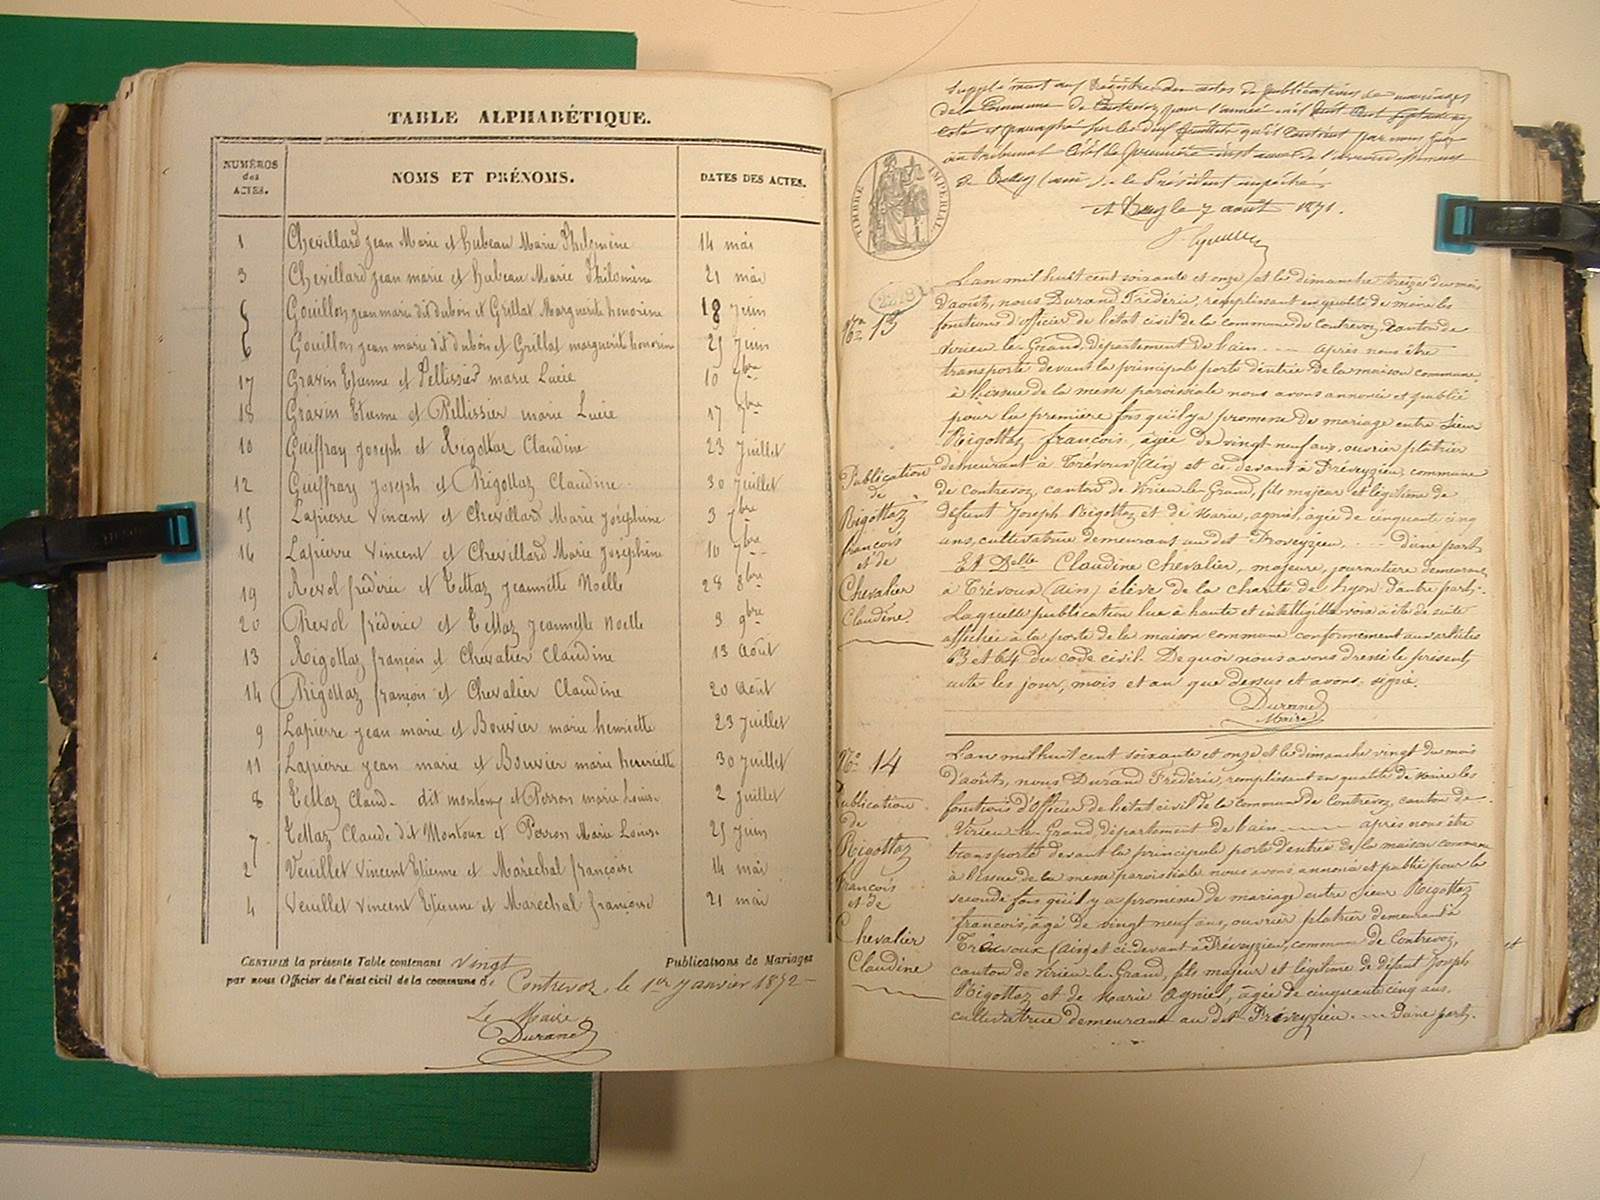 TABLE ALPHABÉTIQUE.
NUMÉROS des ACTES.
NOMS ET PRÉNOMS.
DATES DES ACTES.
1 Chevillard Jean Marie et hubeau Marie Philomène 14 mai
3 Chevillard Jean marie et hubeau Marie Philomène 21 mai
Gouillon jean marie dit dubois et Grillat Marguerite honorine 18 juin
6 Gouillon jean marie dit dubois et Grillat marguerite honorine 25 juin
17 Gravin Etienne et Pellissier marie Lucie 10 7bre
18 Gravin Etienne et Pellissier marie Lucie 17 7bre
10 Guiffray Joseph et Rigottaz Claudine 23 Juillet
12 Guiffray Joseph et Rigottaz Claudine 30 Juillet
15 Lapierre Vincent et Chevillard Marie Joséphine 3 7bre
16 Lapierre Vincent et Chevillard Marie Joséphine 10 7bre
19 Revol frédéric et Tettaz Jeannette Noelle 28 8bre
20 Revol frédéric et Tettaz Jeannette Noelle 3 9bre
13 Rigottaz françois et Chevalier Claudine 13 Août
14 Rigottaz françois et Chevalier Claudine 20 Août
9 Lapierre Jean marie et Bouvier marie henriette 23 juillet
11 Lapierre jean marie et Bouvier marie henriette 30 juillet
8 Tettaz Claude dit et Perron marie Louise 2 juillet
7 Tettaz Claude dit Montoux et Perron Marie Louise 25 juin
2 Veuillet Vincent Etienne et Maréchal françoise 14 mai
4 Veuillet Vincent Etienne et Maréchal françoise 21 mai
CERTIFIÉ la présente Table contenant vingt Publications de Mariages
par nous Officier de l'état civil de la commune de Contrevoz, le 1er Janvier 1872
Le Maire
Durand
Supplément aux Régistres des actes de publications de mariages
de la Commune de Contrevoz pour l'année mil huit cent
coté et paraphé sur les feuillets qu'il contient par nous juge
au tribunal civil de première instance de l'arrondissement
de Belley (ain) le Président empêché
à Belley le 7 août 1871.
TIMBRE IMPÉRIAL
No 13
Publication
de
Rigottaz
françois
et de
Chevalier
Claudine
L'an mil huit cent soixante et onze et le dimanche treize du mois
d'août, nous Durand Frédéric, remplissant en qualité de maire les
fonctions d'officier de l'état civil de la commune de Contrevoz, canton de
Virieu le Grand, département de l'ain après nous être
transporté devant la principale porte d'entrée de la maison commune,
à l'issue de la messe paroissiale nous avons annoncé et publié
pour la première fois qu'il y a promesse de mariage entre Sieur
Rigottaz françois âgé de vingt-neuf ans, ouvrier platrier
demeurant à Trévoux (ain) et ci-devant à Préveyzieu, commune
de Contrevoz, canton de Virieu-le-Grand, fils majeur et légitime de
défunt Joseph Rigottaz et de Marie, agniel, âgée de cinquante cinq
ans, cultivatrice demeurant au dit Proveyzieu, d'une part
Et Delle Claudine Chevalier, majeure, journalière demeurant
à Trévoux (ain) élève de la charité de Lyon d'autre part.
Laquelle publication lue à haute et intelligible voix a été de suite
affichée à la porte de la maison commune conformément aux articles
63 et 64 du code civil. De quoi nous avons dressé le présent
acte les jour, mois et an que dessus et avons signé
Durand
Maire
No 14
Publication
de
Rigottaz
françois
et de
Chevalier
Claudine
L'an mil huit cent soixante et onze et le dimanche vingt du mois
d'août, nous Durand Frédéric, remplissant en qualité de Maire les
fonctions d'Officier de l'état civil de la commune de Contrevoz, canton de
Virieu-le-Grand, département de l'ain après nous être
transporté devant la principale porte d'entrée de la maison commune
à l'issue de la messe paroissiale nous avons annoncé et publié pour la
seconde fois qu'il y a promesse de mariage entre Sieur Rigottaz
françois, âgé de vingt neuf ans, ouvrier platrier demeurant à
Trévoux (ain) et ci-devant à Préveyzieu, commune de Contrevoz,
canton de Virieu-le-Grand, fils majeur et légitime de défunt Joseph
Rigottaz et de Marie Agniel, âgée de cinquante cinq ans,
cultivatrice demeurant au dit Préveyzieu. d'une part.